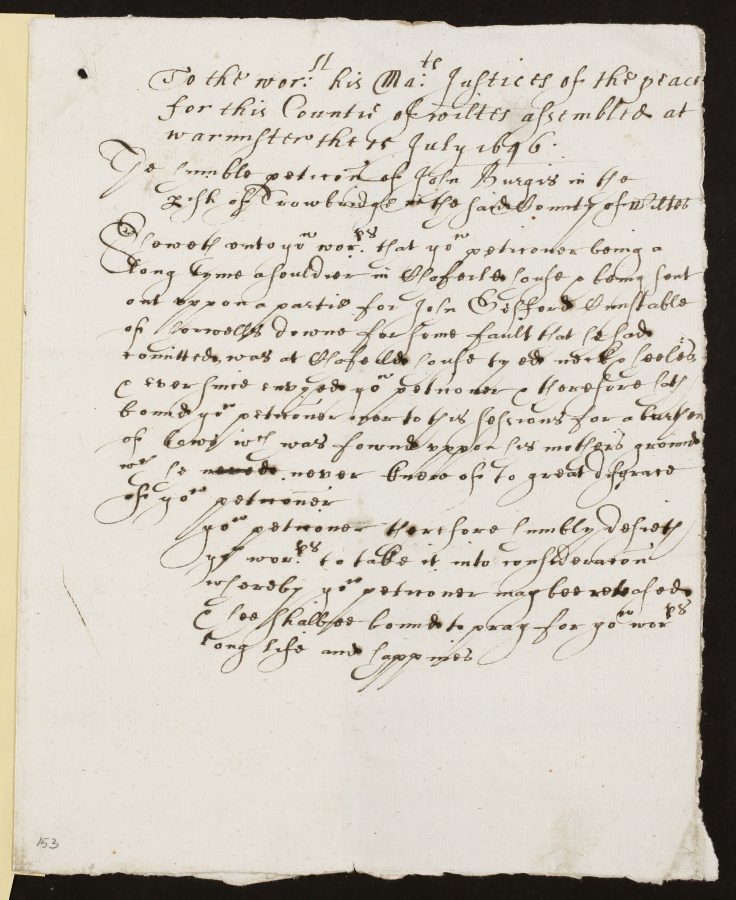 To the wor:ll his Ma:te Justices of the peace
for this Countie of wiltes assembled at
warmister the 15 July 1646.
The humble peticon of John Burgis in the
pish of Trowbridge in the said County of Wiltes
Sheweth unto yor worps: that yor peticoner being a
long tyme a souldier in house & being sent
out uppon a partie for John Constable
of downe for some fault that he had
comitted, was at house tyed neck & heeles
& ever since envyed yor peticoner & therefore hath
bound yor peticoner over to this sessions for a burthen
of wch was found uppon his mothers grounde
wch he never knew of to great disgrace
of yor peticoner
yor peticoner therefore humbly desireth
yor worps: to take it into consideracon
whereby yor peticoner may bee released
& hee shalbee bound to pray for yor worps
long life and happines
153